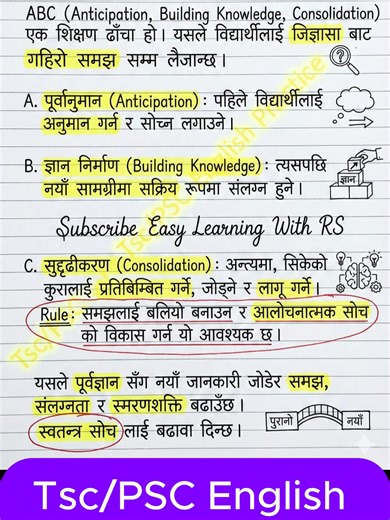 ABC (Anticipation, Building Knowledge, Consolidation)
एक शिक्षण ढाँचा हो। यसले विद्यार्थीलाई जिज्ञासा बाट
गहिरो समझ सम्म लैजान्छ।
A. पूर्वानुमान (Anticipation) : पहिले विद्यार्थीलाई
अनुमान गर्न र सोच्न लगाउने।
B. ज्ञान निर्माण (Building Knowledge) : त्यसपछि
नयाँ सामग्रीमा सक्रिय रूपमा संलग्न हुने।
ज्ञान
Subscribe Easy Learning With RS
C. सुदृढीकरण (Consolidation) : अन्त्यमा, सिकेको
कुरालाई प्रतिबिम्बित गर्ने, जोड्ने र लागू गर्ने।
Rule: समझलाई बलियो बनाउन र आलोचनात्मक सोच
को विकास गर्न यो आवश्यक छ।
यसले पूर्वज्ञान सँग नयाँ जानकारी जोडेर समझ,
संलग्नता र स्मरणशक्ति बढाउँछ।
पुरानो नयाँ
स्वतन्त्र सोच लाई बढावा दिन्छ।
Tsc/PSC English Practice
Tsc/PSC English